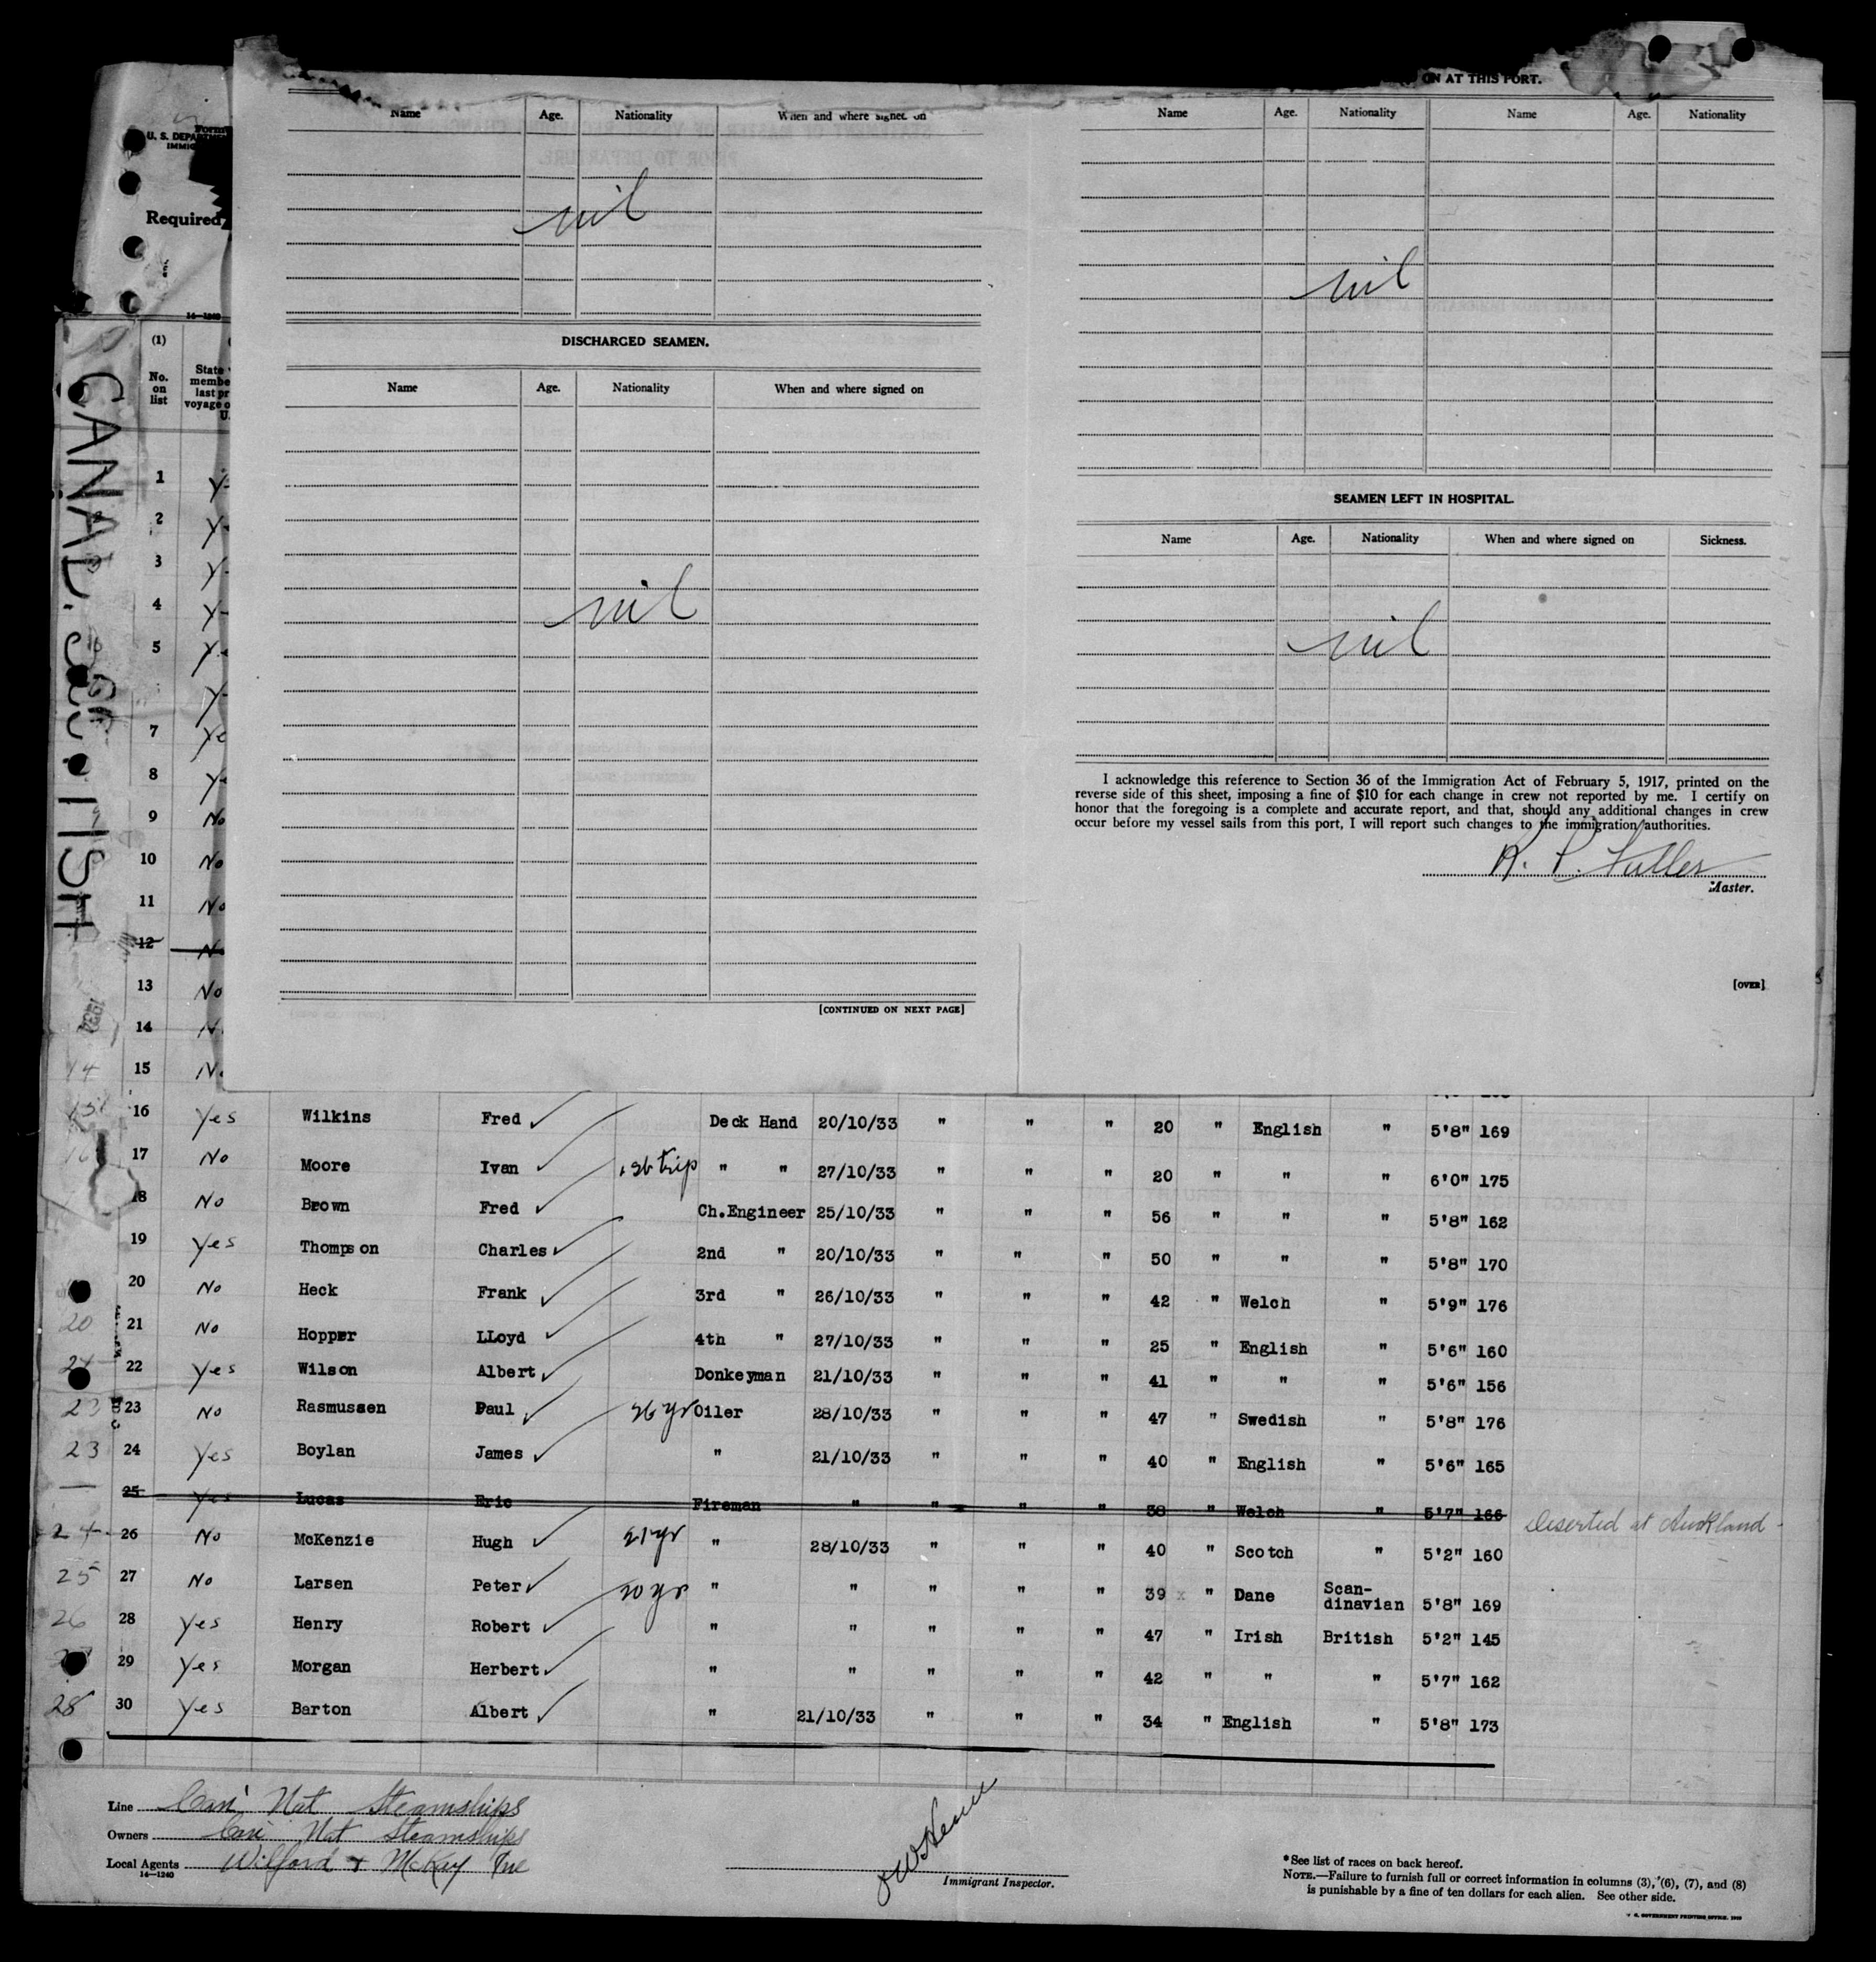 ON AT THIS PORT.
Name Age. Nationality When and where signed on
nil
DISCHARGED SEAMEN.
Name Age. Nationality When and where signed on
nil
[CONTINUED ON NEXT PAGE]
Name Age. Nationality Name Age. Nationality
nil
SEAMEN LEFT IN HOSPITAL.
Name Age. Nationality When and where signed on Sickness.
nil
I acknowledge this reference to Section 36 of the Immigration Act of February 5, 1917, printed on the
reverse side of this sheet, imposing a fine of $10 for each change in crew not reported by me. I certify on
honor that the foregoing is a complete and accurate report, and that, should any additional changes in crew
occur before my vessel sails from this port, I will report such changes to the immigration authorities.
R. P. Fuller
Master.
[OVER]
Form
U. S. DEPARTMEN
IMMIG
Required
14—1240
(1)
No.
on
list
State
membe
last pr
voyage o
U.
1 Y
2 Y
3 Y
4 Y
5 Y
Y
7 Ye
8 Ye
9 No
10 No
11 No
12 N
13 No
14 N
14 15 N
15 16 Yes Wilkins Fred ✓ Deck Hand 20/10/33 " " " 20 " English " 5'8" 169
16 17 No Moore Ivan ✓ 1st trip " " 27/10/33 " " " 20 " " " 6'0" 175
18 No Brown Fred ✓ Ch.Engineer 25/10/33 " " " 56 " " " 5'8" 162
19 Yes Thompson Charles ✓ 2nd " 20/10/33 " " " 50 " " " 5'8" 170
20 No Heck Frank ✓ 3rd " 26/10/33 " " " 42 " Welch " 5'9" 176
20 21 No Hopper LLoyd ✓ 4th " 27/10/33 " " " 25 " English " 5'6" 160
21 22 Yes Wilson Albert ✓ Donkeyman 21/10/33 " " " 41 " " " 5'6" 156
23 No Rasmussen Paul ✓ 26 yr Oiler 28/10/33 " " " 47 " Swedish " 5'8" 176
23 24 Yes Boylan James ✓ " 21/10/33 " " " 40 " English " 5'6" 165
— 25 Yes Lucas Eric Fireman " " " " 38 " Welch " 5'7" 166 Deserted at Auckland -
24 26 No McKenzie Hugh ✓ 21 yr " 28/10/33 " " " 40 " Scotch " 5'2" 160
25 27 No Larsen Peter ✓ 20 yr " " " " " 39 x " Dane Scan-
dinavian 5'8" 169
26 28 Yes Henry Robert ✓ " " " " " 47 " Irish British 5'2" 145
29 Yes Morgan Herbert ✓ " " " " " 42 " " " 5'7" 162
28 30 Yes Barton Albert ✓ " 21/10/33 " " " 34 " English " 5'8" 173
Line Can Nat Steamships
Owners Can Nat Steamships
Local Agents Wilford & McKay Inc
14—1240
Immigrant Inspector.
*See list of races on back hereof.
NOTE.—Failure to furnish full or correct information in columns (3), (6), (7), and (8)
is punishable by a fine of ten dollars for each alien. See other side.
GOVERNMENT PRINTING OFFICE